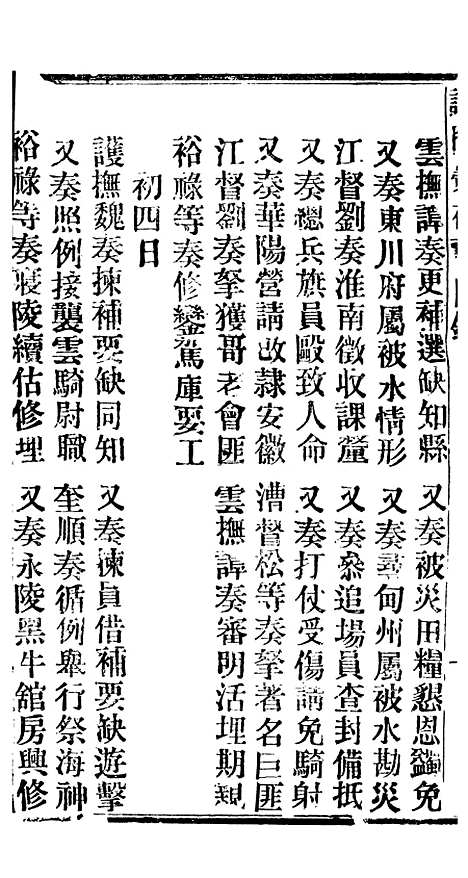 雲撫譚奏更補選缺知縣　又奏被災田糧懇恩蠲免
又奏東川府屬被水情形　又奏尋甸州屬被水勘災
江督劉奏淮南徵收課釐　又奏叅追場員查封備抵
又奏總兵旗員毆致人命　又奏打仗受傷請免騎射
又奏華陽營請改隸安徽　漕督松等奏拏著名巨匪
江督劉奏拏獲哥老會匪　雲撫譚奏審明活埋期親
裕祿等奏修鑾駕庫要工
初四日
護撫魏奏揀補要缺同知　又奏揀員借補要缺遊擊
又奏照例接襲雲騎尉職　奎順奏循例舉行祭海神
裕祿等奏寢陵續估修理　又奏永陵黑牛舘房興修